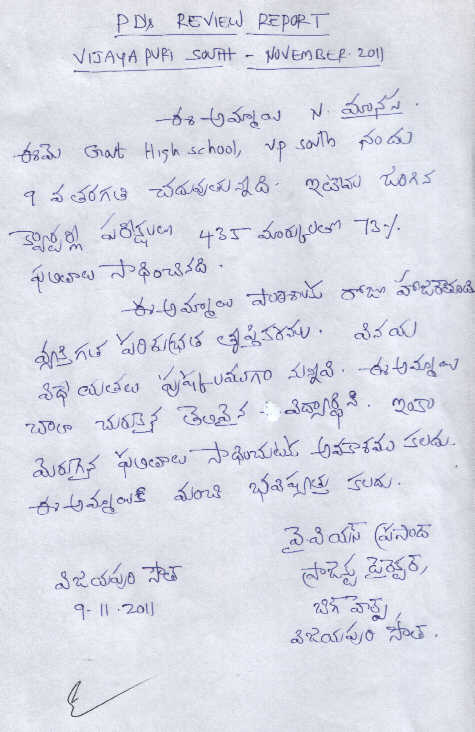 PD's REVIEW REPORT
VIJAYAPURI SOUTH - NOVEMBER-2011
ఈ అమ్మాయి N. మానస.
ఈమె Govt High school, VP South నందు
9 వ తరగతి చదువుతున్నది. ఇటీవల జరిగిన
క్వార్టర్లీ పరీక్షలలో 435 మార్కులతో 73%
ఫలితాలు సాధించినది.
ఈ అమ్మాయి పాఠశాలకు రోజూ హాజరవుతుంది
వ్యక్తిగత పరిశుభ్రత తృప్తికరము. వినయ
విధేయతలు పుష్కలముగా నున్నవి. ఈ అమ్మాయి
చాలా చురుకైన తెలివైన విద్యార్థిని. ఇంకా
మెరుగైన ఫలితాలు సాధించుటకు అవకాశము కలదు.
ఈ అమ్మాయికి మంచి భవిష్యత్తు కలదు.
వై వి యస్ ప్రసాద్
ప్రాజెక్టు డైరెక్టర్,
విజయపురి సౌత్
9-11-2011
బిగ్ హెల్ప్,
విజయపురి సౌత్.